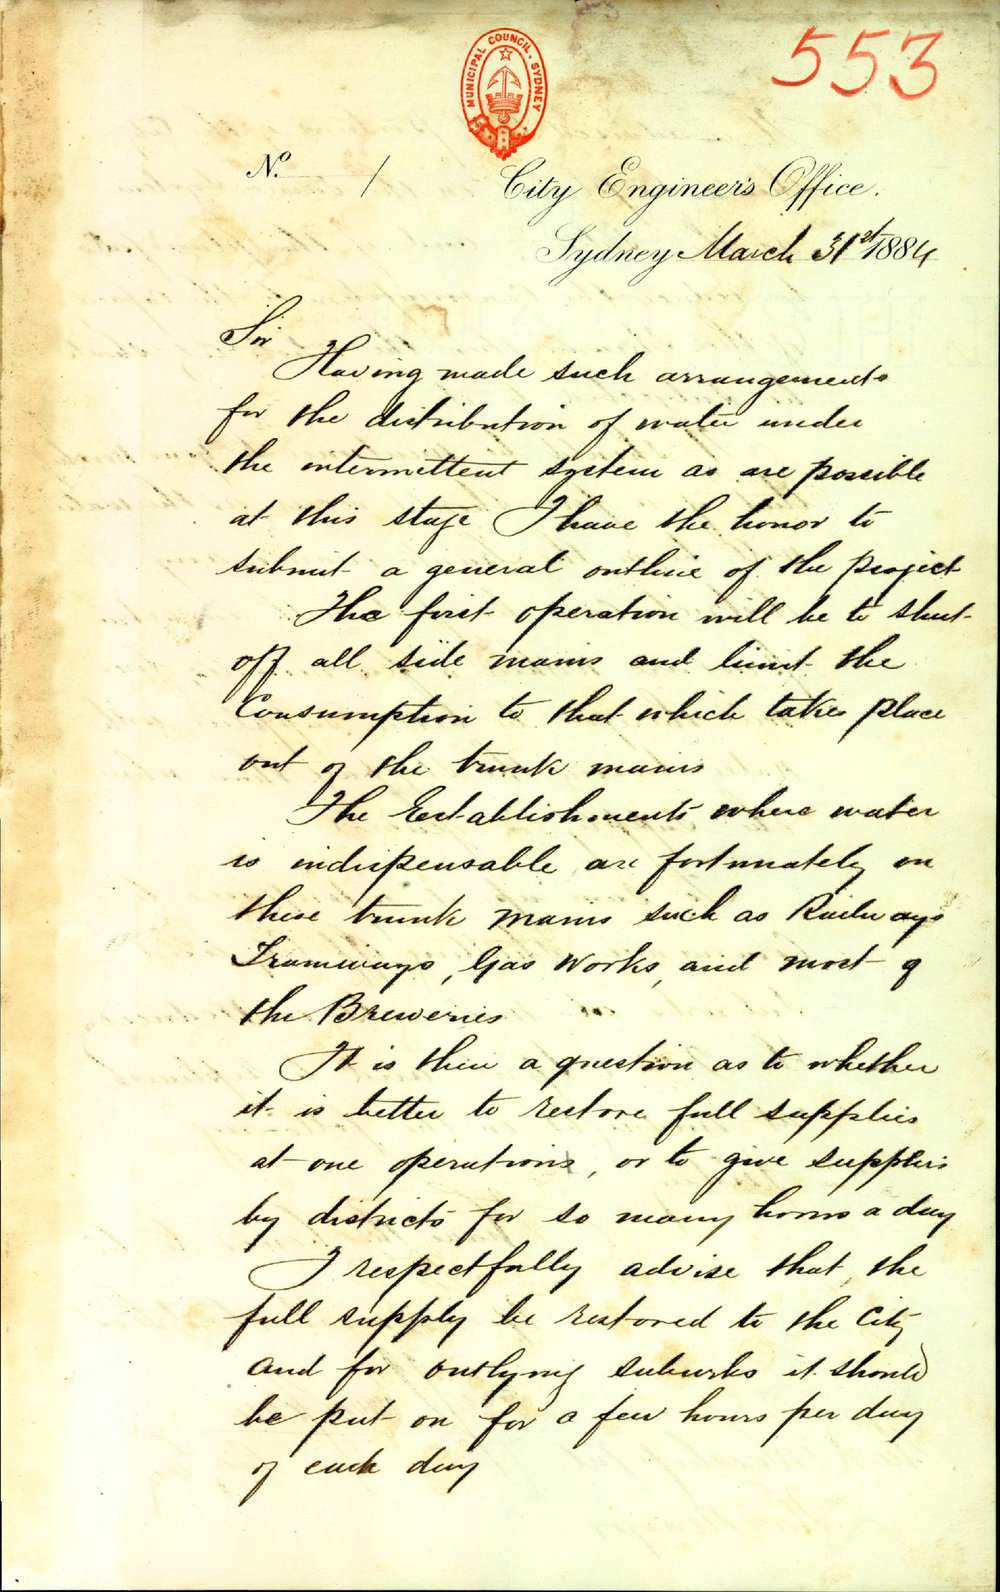 553
MUNICIPAL COUNCIL. SYDNEY
No. /
City Engineer's Office.
Sydney March 31st 1884
Sir
Having made such arrangements
for the distribution of water under
the intermittent system as are possible
at this stage I have the honor to
submit a general outline of the project
The first operation will be to shut
off all side mains and limit the
Consumption to that which takes place
out of the trunk mains
The Establishments where water
is indispensable are fortunately on
these trunk mains such as Railways
Tramways, Gas Works, and most of
the Breweries
It is then a question as to whether
it is better to restore full supplies
at one operations, or to give supplies
by districts for so many hours a day
I respectfully advise that the
full supply be restored to the City
and for outlying suburbs it should
be put on for a few hours per day
of each day